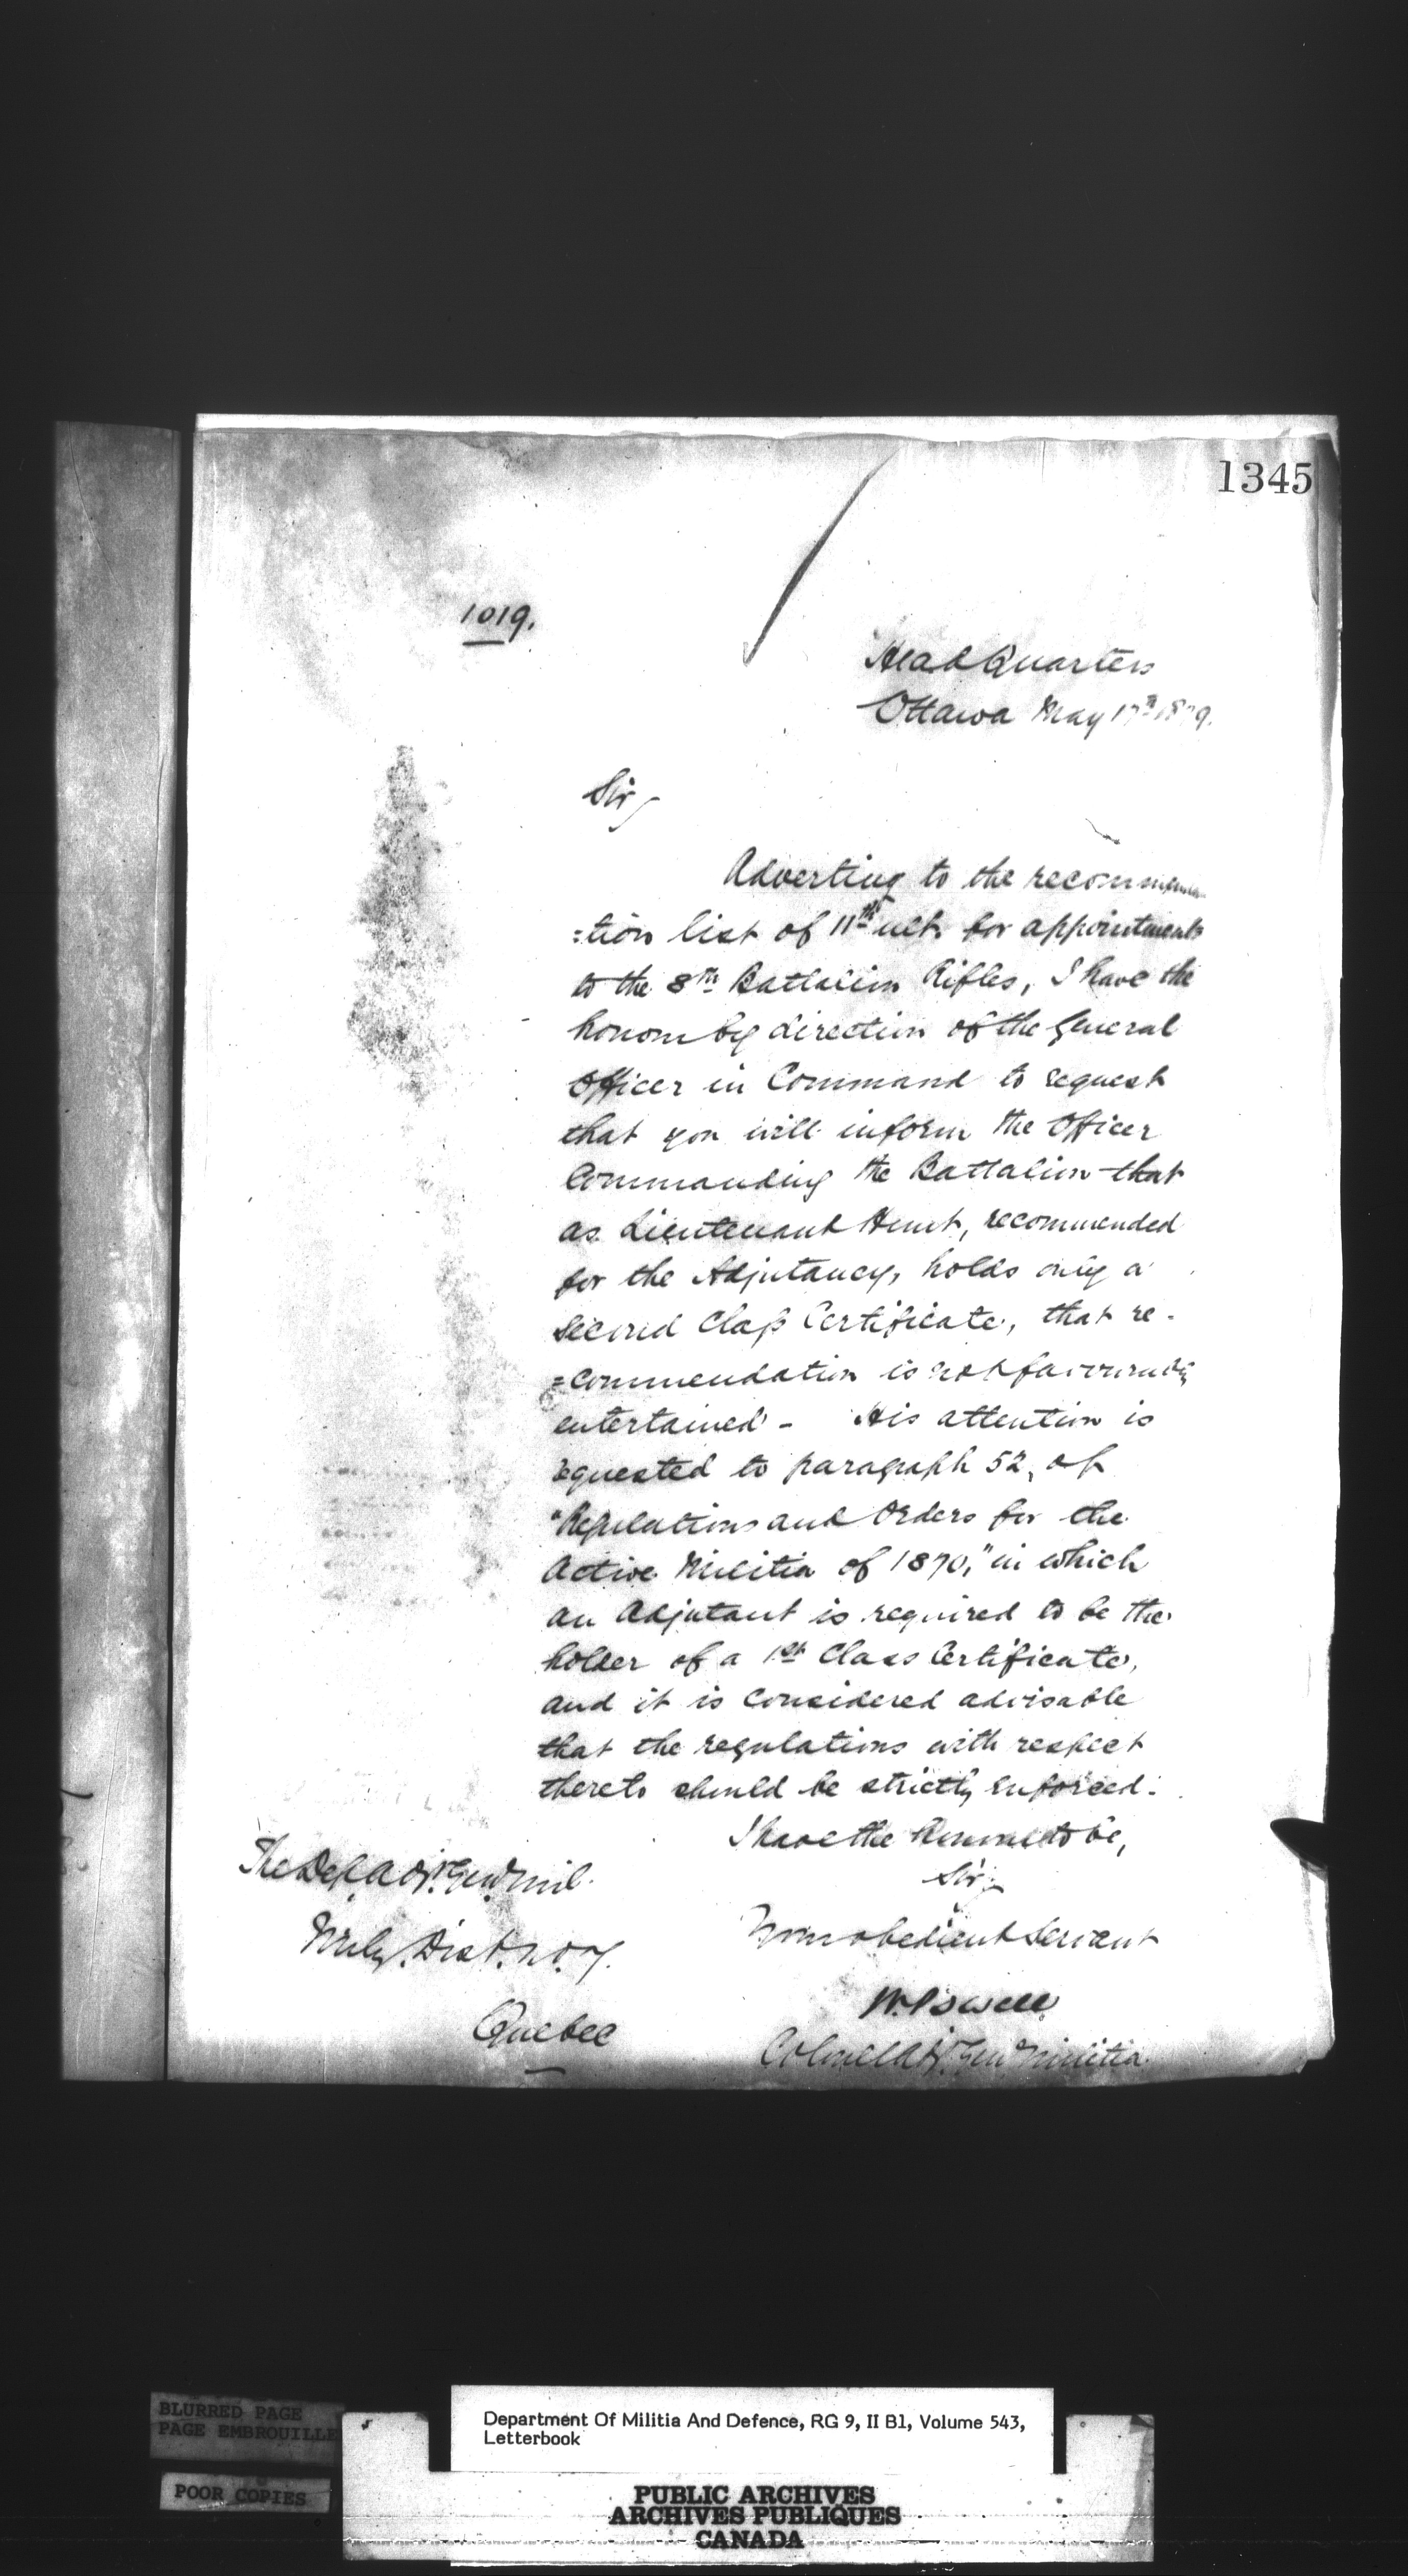 1345
1019.
Head Quarters
Ottawa May 17th 1879.
Sir,
Adverting to the recommenda
=tion list of 11th ult. for appointments
to the 8th Battalion Rifles, I have the
honour by direction of the General
Officer in Command to request
that you will inform the Officer
Commanding the Battalion that
as Lieutenant Hunt, recommended
for the Adjutancy, holds only a
Second Class Certificate, that re-
=commendation is not favourably
entertained - His attention is
requested to paragraph 52, of
"Regulations and Orders for the
Active Militia of 1870," in which
an Adjutant is required to be the
holder of a 1st Class Certificate,
and it is considered advisable
that the regulations with respect
thereto should be strictly enforced.
I have the honour to be,
Sir,
Your obedient Servant
W. Powell
Colonel Adjt. Genl Militia
The Dep. Adjt. Genl Mil.
Mily. Dist. No. 7.
Quebec
BLURRED PAGE
PAGE EMBROUILLE
POOR COPIES
Department Of Militia And Defence, RG 9, II B1, Volume 543,
Letterbook
PUBLIC ARCHIVES
ARCHIVES PUBLIQUES
CANADA